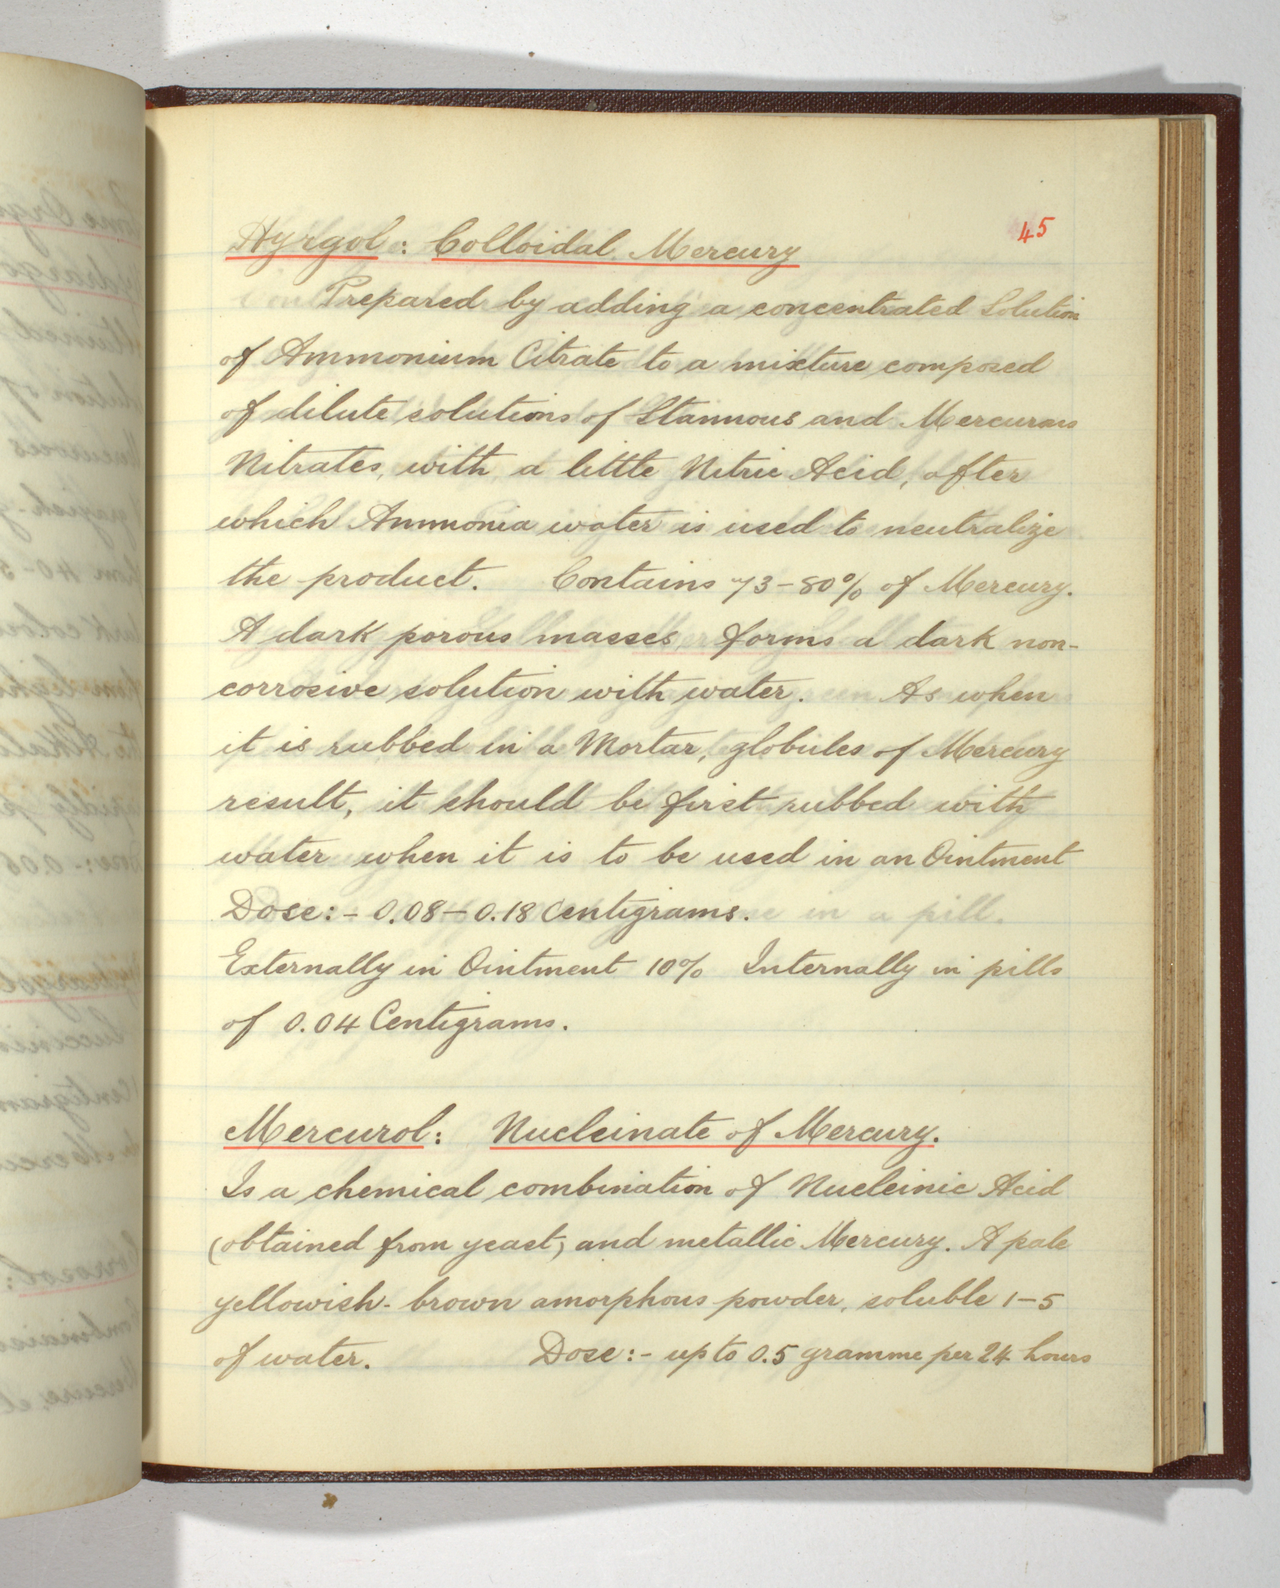 45
Hyrgol: Colloidal Mercury
Prepared by adding a concentrated Solution
of Ammonium Citrate to a mixture composed
of dilute solutions of Stannous and Mercurous
Nitrates, with a little Nitric Acid, after
which Ammonia water is used to neutralize
the product. Contains 73-80% of Mercury.
A dark porous masses, forms a dark non-
corrosive solution with water. As when
it is rubbed in a Mortar, globules of Mercury
result, it should be first rubbed with
water when it is to be used in an Ointment
Dose:- 0.08-0.18 Centigrams.
Externally in Ointment 10% Internally in pills
of 0.04 Centigrams.
Mercurol: Nucleinate of Mercury.
Is a chemical combination of Nucleinic Acid
(obtained from yeast) and metallic Mercury. A pale
yellowish-brown amorphous powder, soluble 1-5
of water. Dose:- up to 0.5 gramme per 24 hours